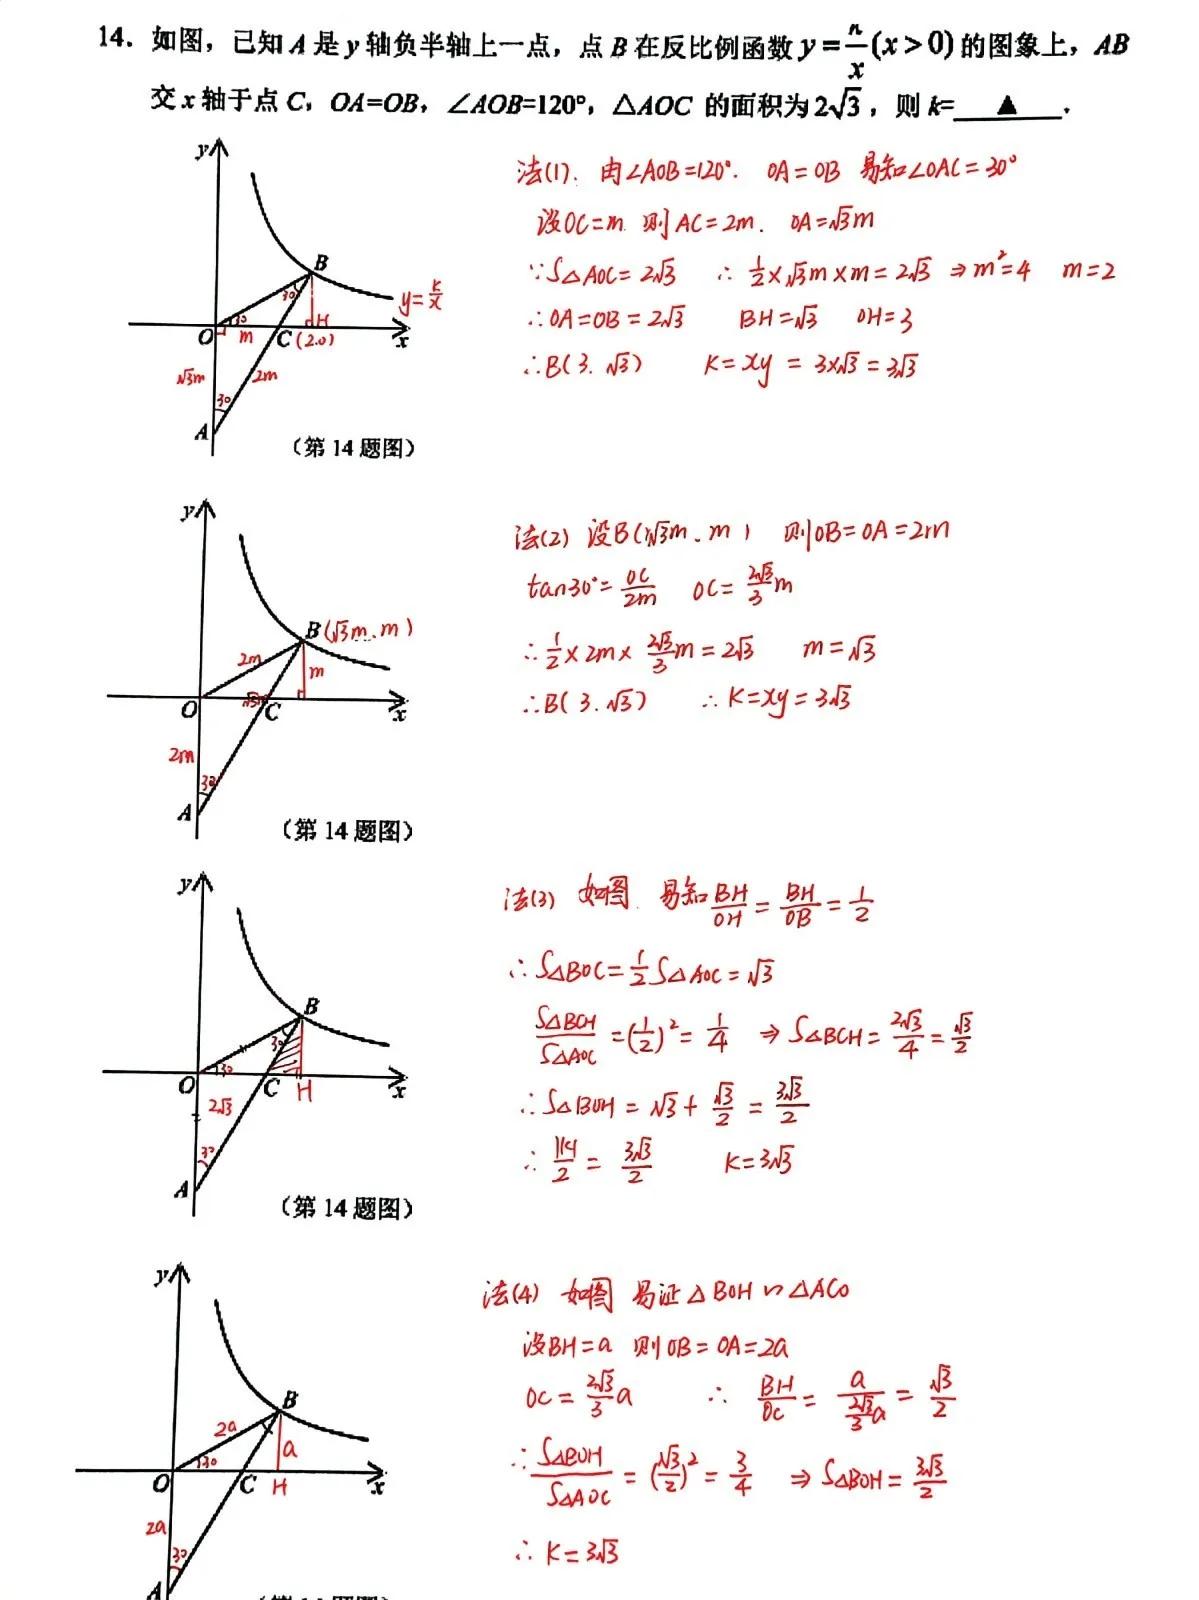 14. 如图，已知 A 是 y 轴负半轴上一点，点 B 在反比例函数 y = n/x (x > 0) 的图象上，AB
交 x 轴于点 C，OA=OB，∠AOB=120°，△AOC 的面积为 2√3，则 k= ▲ ．
y
B
30°
y = k/x
30
H
O
m
C (2.0)
x
√3m
2m
30
A
（第 14 题图）
法(1). 由∠AOB=120°. OA=OB 易知∠OAC=30°
设OC=m 则AC=2m. OA=√3m
∵S△AOC=2√3 ∴ 1/2×√3m×m=2√3 ⇒ m²=4 m=2
∴OA=OB=2√3 BH=√3 OH=3
∴B(3. √3) K=xy = 3×√3=3√3
y
B(√3m、m)
2m
m
O
√3m
C
x
2m
30
A
（第 14 题图）
法(2) 设B(√3m、m) 则OB=OA=2m
tan30°=OC/2m OC=2√3/3 m
∴1/2×2m×2√3/3 m=2√3 m=√3
∴B(3.√3) ∴K=xy=3√3
y
B
30
30
O
C
H
x
2√3
30
A
（第 14 题图）
法(3) 如图 易知 BH/OH = BH/OB = 1/2
∴S△BOC=1/2 S△AOC=√3
S△BCH/S△AOC=(1/2)²=1/4 ⇒ S△BCH=2√3/4=√3/2
∴S△BOH=√3+√3/2=3√3/2
∴|K|/2=3√3/2 K=3√3
y
B
2a
a
30
O
C
H
x
2a
30
A
法(4) 如图 易证△BOH∽△ACO
设BH=a 则OB=OA=2a
OC=2√3/3 a ∴ BH/OC = a/(2√3/3 a) = √3/2
∴S△BOH/S△AOC=(√3/2)²=3/4 ⇒S△BOH=3√3/2
∴K=3√3